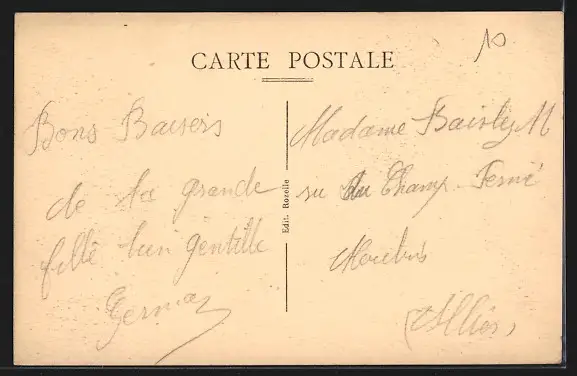 10
CARTE POSTALE
Bons Baisers
de ta grande
fille bien gentille
Edit. Rozelle
Madame
rue du Champ Fermé
Moulins
(Allier)